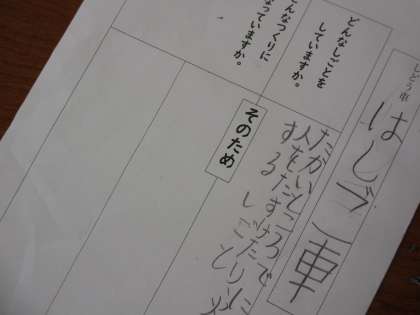 どう車
はしご車
どんなしごとを
していますか。
たかいところで
人をたすけ
する しご
どんなつくりに
なっていますか。
そのため